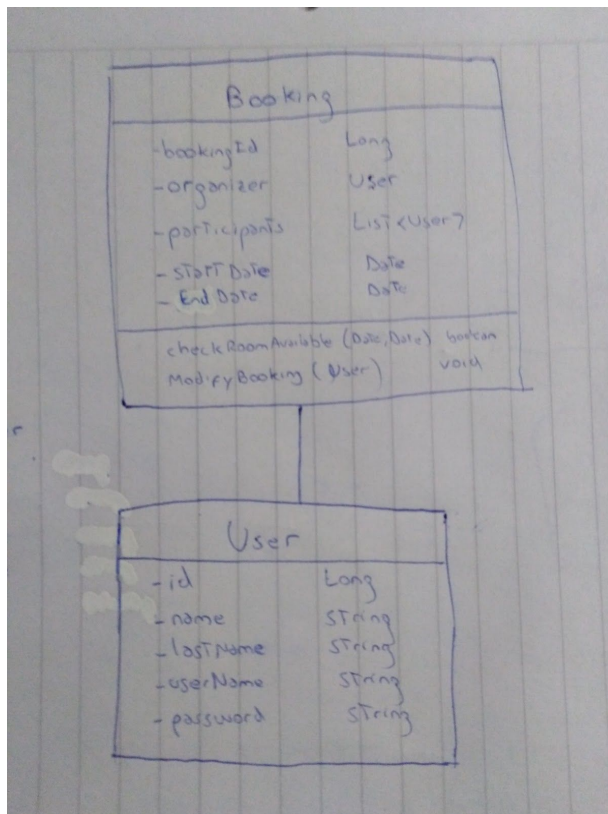 Booking
-bookingId Long
-organizer User
-participants List<User>
-startDate Date
- EndDate Date
checkRoomAvailable (Date, Date) boolean
ModifyBooking (User) void
User
-id Long
-name String
-lastName String
-userName String
-password String